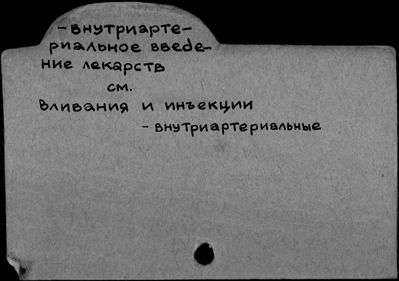 - внутриарте-
риальное введе-
ние лекарств
см.
Вливания и инъекции
- внутриартериальные